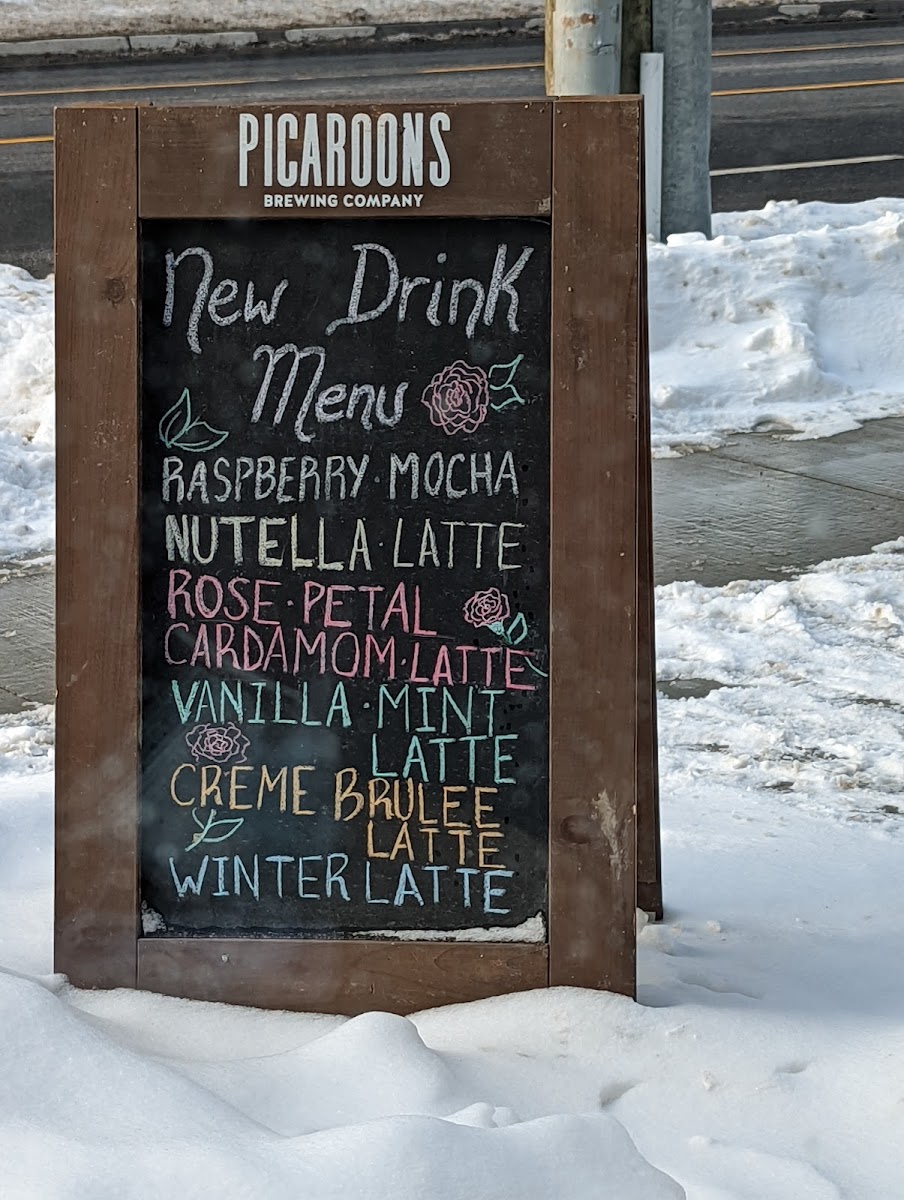 PICAROONS
BREWING COMPANY
New Drink
Menu
RASPBERRY·MOCHA
NUTELLA·LATTE
ROSE·PETAL
CARDAMOM·LATTE
VANILLA·MINT
LATTE
CREME BRULEE
LATTE
WINTER LATTE